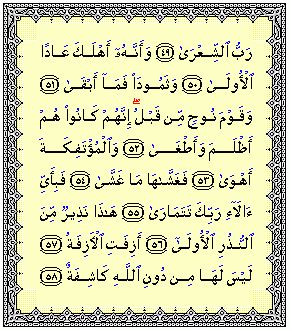 رَبُّ ٱلشِّعْرَىٰ ﴿٤٩﴾ وَأَنَّهُۥٓ أَهْلَكَ عَادًا
ٱلْأُولَىٰ ﴿٥٠﴾ وَثَمُودَا۟ فَمَآ أَبْقَىٰ ﴿٥١﴾
وَقَوْمَ نُوحٍ مِّن قَبْلُ ۖ إِنَّهُمْ كَانُوا۟ هُمْ
أَظْلَمَ وَأَطْغَىٰ ﴿٥٢﴾ وَٱلْمُؤْتَفِكَةَ
أَهْوَىٰ ﴿٥٣﴾ فَغَشَّىٰهَا مَا غَشَّىٰ ﴿٥٤﴾ فَبِأَىِّ
ءَالَآءِ رَبِّكَ تَتَمَارَىٰ ﴿٥٥﴾ هَـٰذَا نَذِيرٌ مِّنَ
ٱلنُّذُرِ ٱلْأُولَىٰٓ ﴿٥٦﴾ أَزِفَتِ ٱلْـَٔازِفَةُ ﴿٥٧﴾
لَيْسَ لَهَا مِن دُونِ ٱللَّهِ كَاشِفَةٌ ﴿٥٨﴾